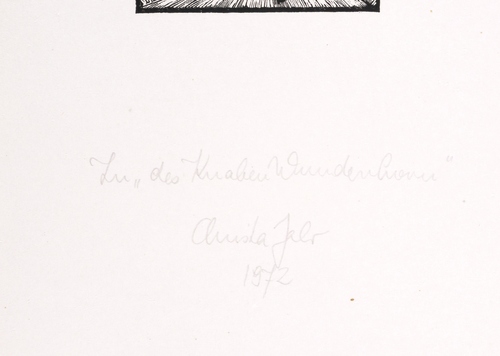 Zu „des Knaben Wunderhorn"
Christa Jahr
1972